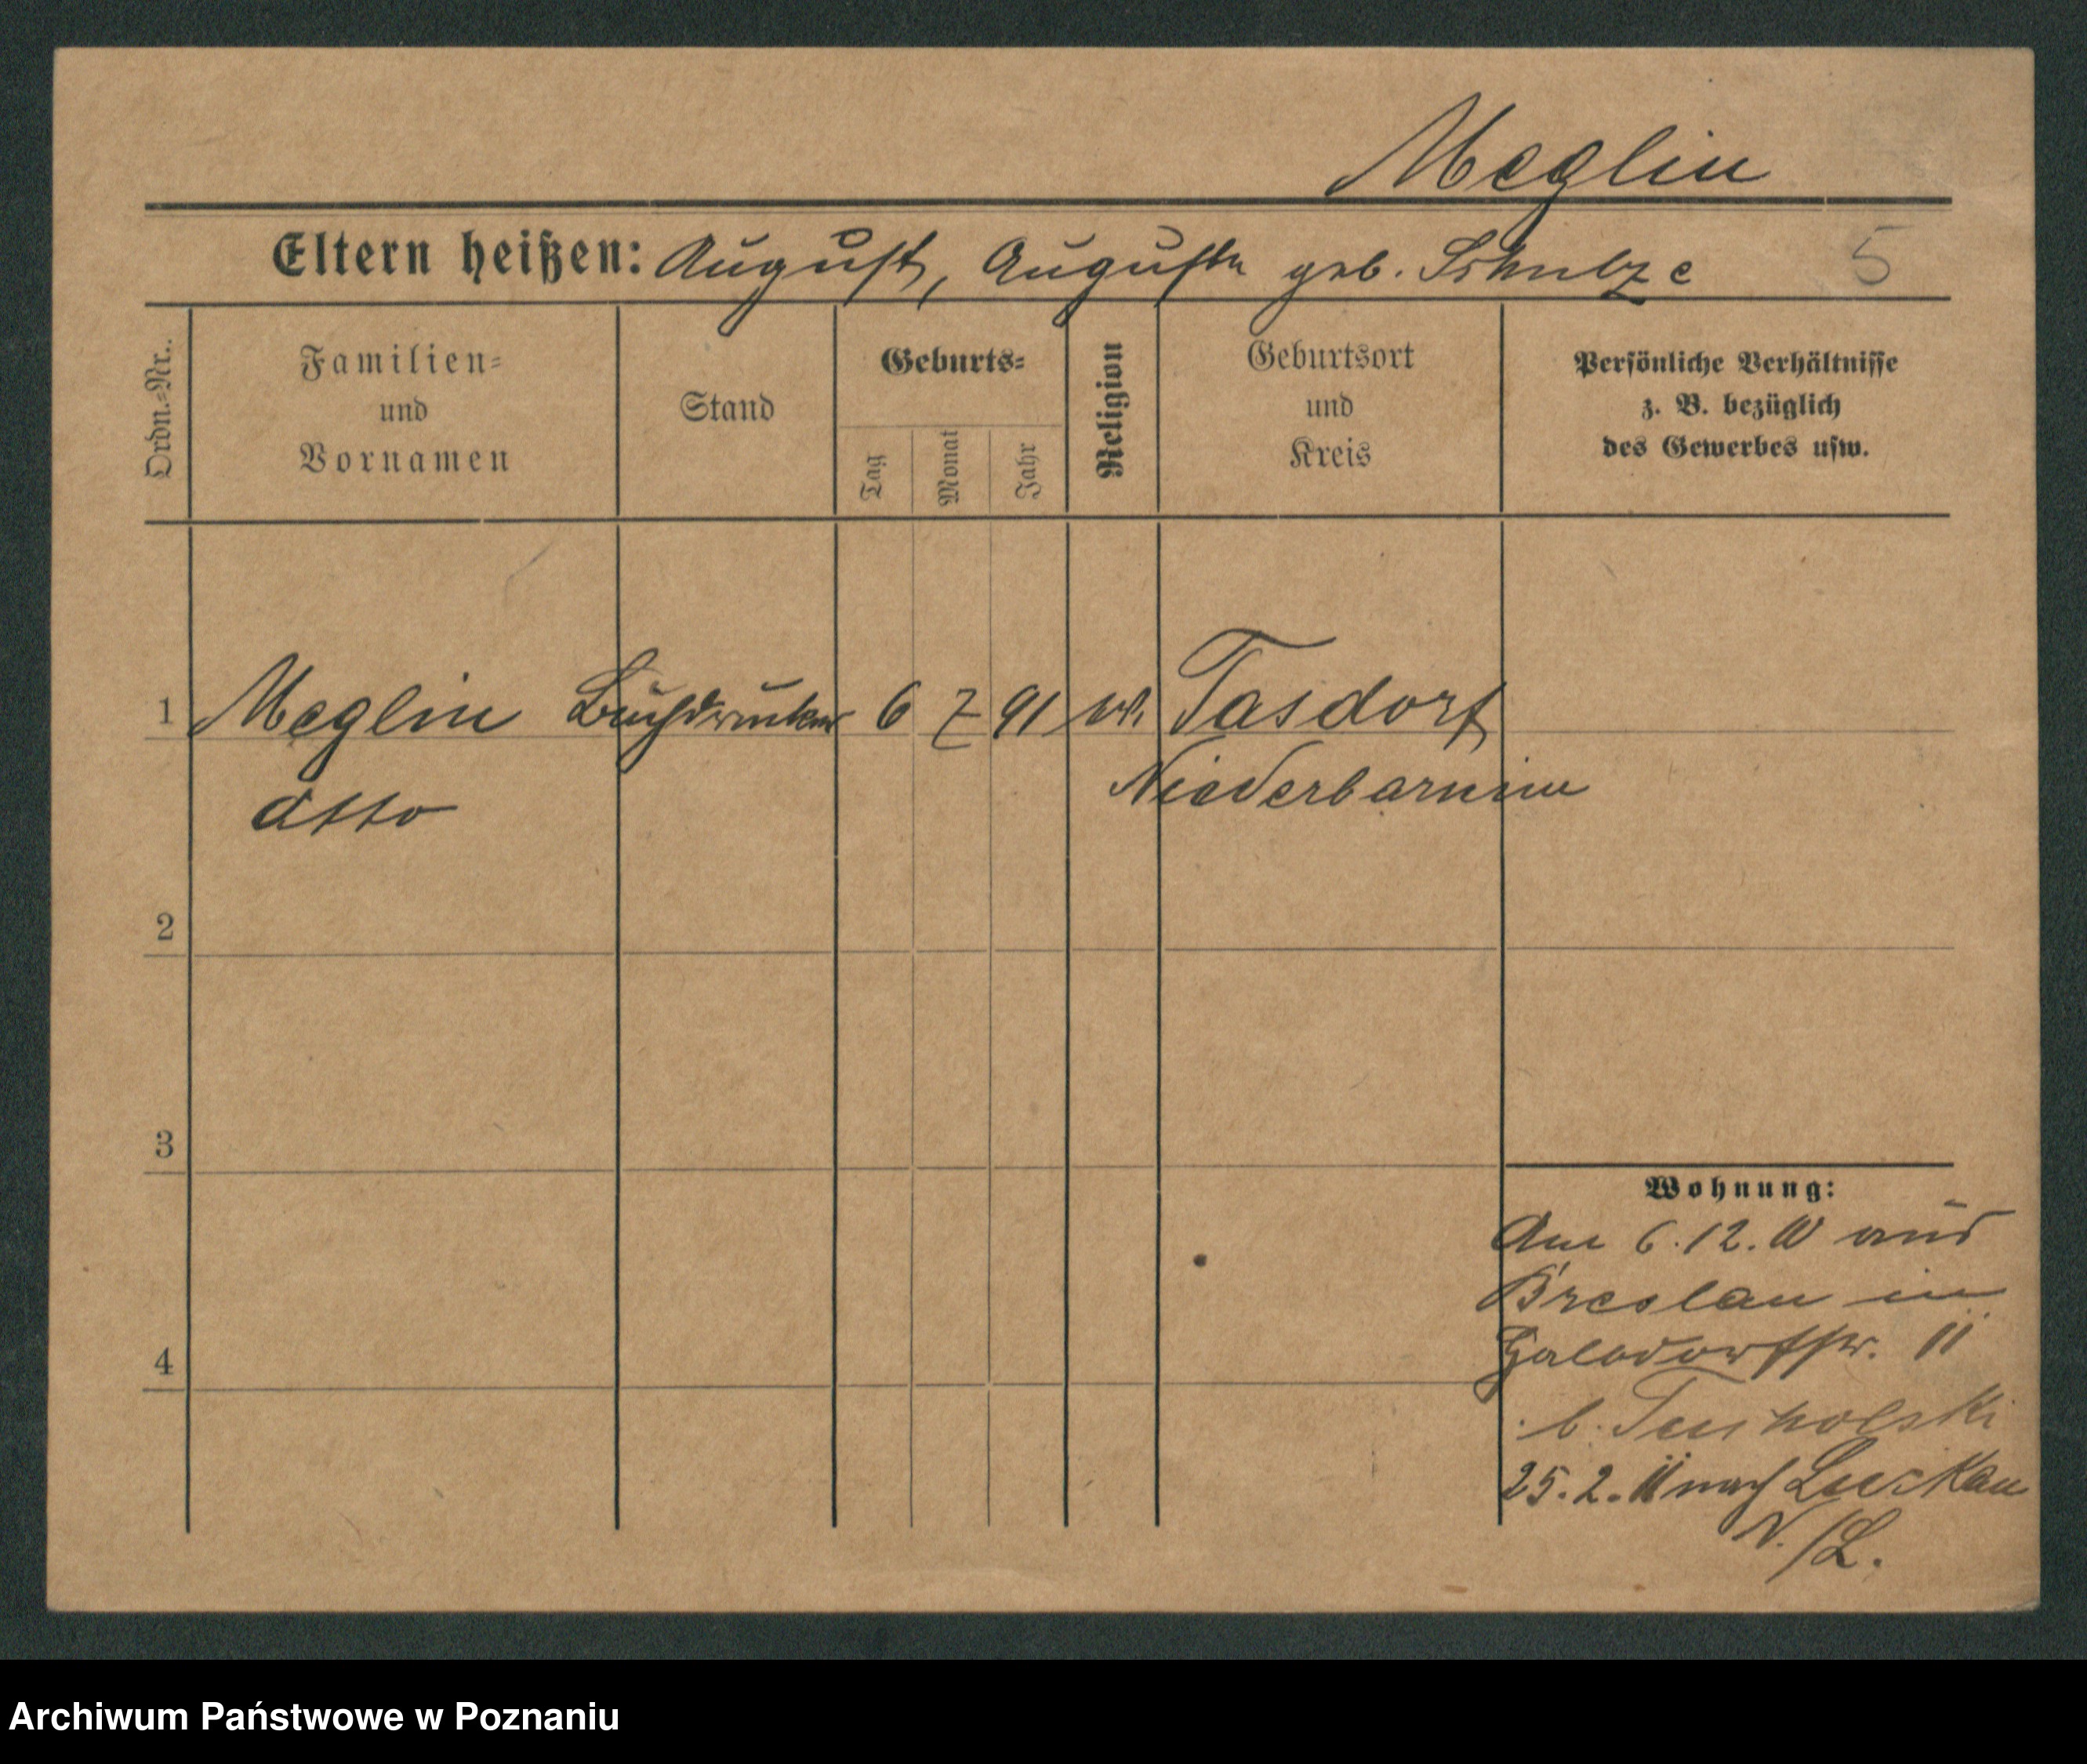 Meglin
Eltern heißen: August, Auguste geb. Schulze 5
Ordn.-Nr.. Familien- und Vornamen Stand Geburts- Tag Monat Jahr Religion Geburtsort und Kreis Persönliche Verhältnisse z. B. bezüglich des Gewerbes usw.
1 Meglin Buchdrucker 6 7 91 ev. Tasdorf
Otto Niederbarnim
2
3
Wohnung:
Am 6.12.10 aus
Breslau in
4
11
b. Tucholski
25.2.11 nach Luckau
N./L.
Archiwum Państwowe w Poznaniu